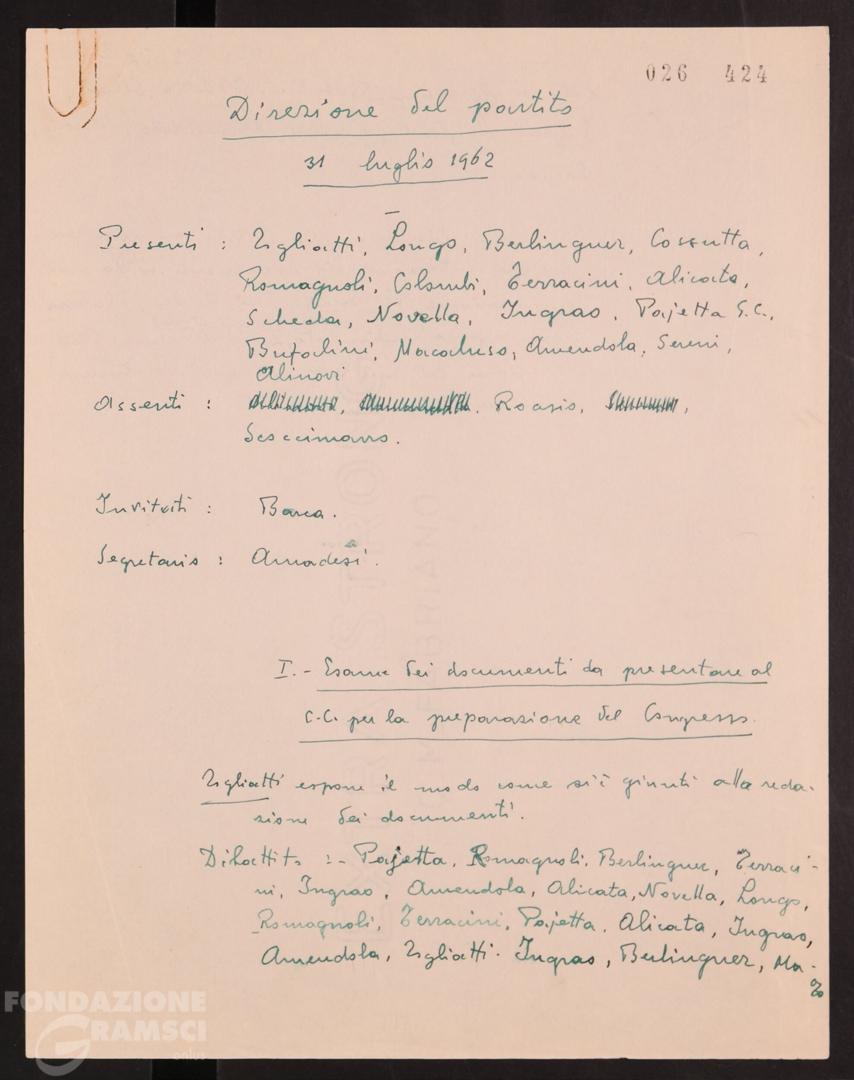 026 424
Direzione del partito
31 luglio 1962
Presenti : Togliatti, Longo, Berlinguer, Cossutta,
Romagnoli, Colombi, Terracini, Alicata,
Scheda, Novella, Ingrao, Pajetta G.C.,
Bufalini, Macaluso, Amendola, Sereni,
Alinovi
Assenti : Roasio,
Scoccimarro.
Invitati : Barca.
Segretario : Amadesi.
I. - Esame dei documenti da presentare al
C.C. per la preparazione del Congresso.
Togliatti espone il modo come si è giunti alla reda-
zione dei documenti.
Dibattito :- Pajetta, Romagnoli, Berlinguer, Terraci-
ni, Ingrao, Amendola, Alicata, Novella, Longo,
Romagnoli, Terracini, Pajetta, Alicata, Ingrao,
Amendola, Togliatti. Ingrao, Berlinguer, Ma-
FONDAZIONE
GRAMSCI
onlus